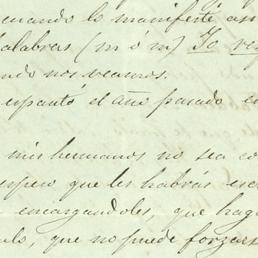 cuando lo manifesté así
palabras (m ó m) Te
ndo nos veamos.
espantó el año pasado en
mis hermanos no sea co
espero que les habrás esc
encargandoles, que hag
ulo, que no puede forzars